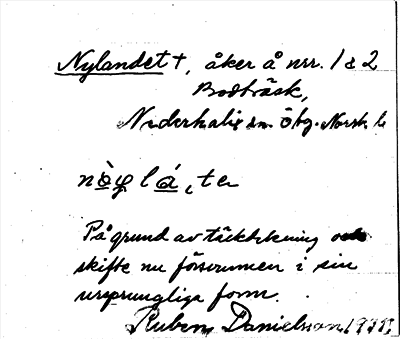 Nylandet +, åker å nrr. 1 & 2
Bodträsk,
Nederkalix sn. Nbg. Norrb. l.
På grund av täckdikning och
skifte nu försvunnen i sin
ursprungliga form.
Ruben Danielsson